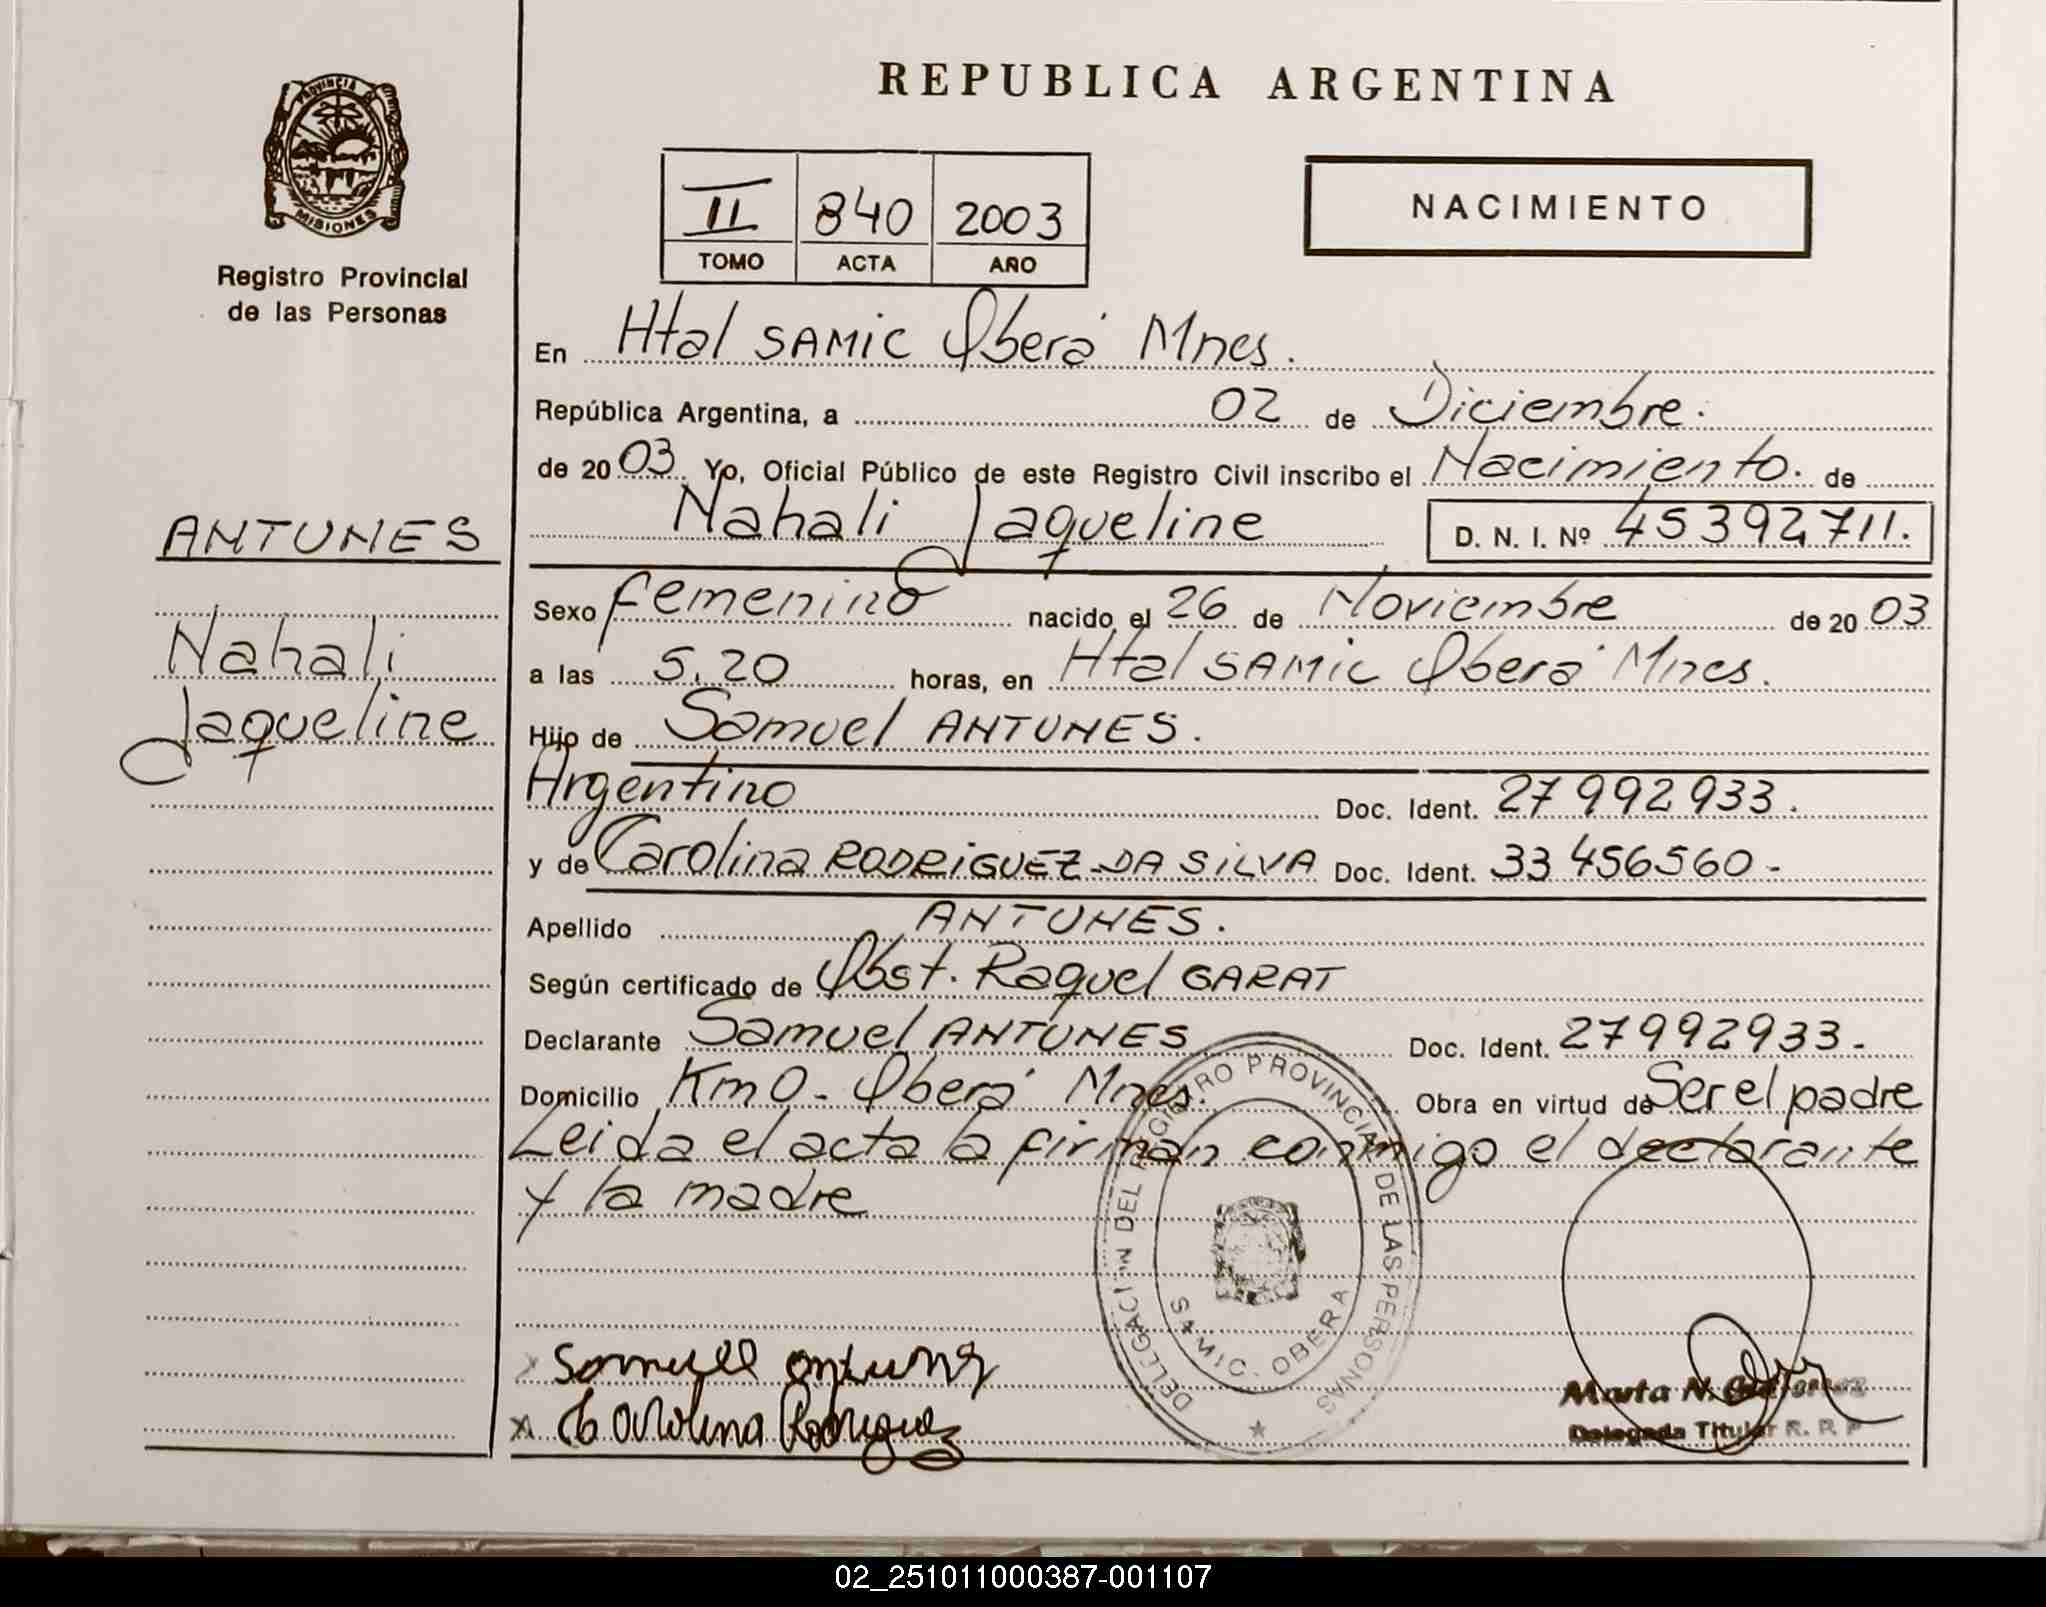 PROVINCIA DE
MISIONES
Registro Provincial
de las Personas
ANTUNES
Nahali
Jaqueline
REPUBLICA ARGENTINA
II 840 2003
TOMO ACTA AÑO
NACIMIENTO
En Htal SAMIC Oberá Mnes.
República Argentina, a 02 de Diciembre.
de 2003. Yo, Oficial Público de este Registro Civil inscribo el Nacimiento. de
Nahali Jaqueline D. N. I. Nº 45392711.
Sexo femenino nacido el 26 de Noviembre de 2003
a las 5.20 horas, en Htal SAMIC Oberá Mnes.
Hijo de Samuel ANTUNES.
Argentino Doc. Ident. 27992933.
y de Carolina RODRIGUEZ-DA SILVA Doc. Ident. 33456560-
Apellido ANTUNES.
Según certificado de Obst. Raquel GARAT
Declarante Samuel ANTUNES Doc. Ident. 27992933-
Domicilio Km 0- Oberá Mnes. Obra en virtud de Ser el padre
Leida el acta la firman conmigo el declarante
y la madre
DELEGACION DEL REGISTRO PROVINCIAL DE LAS PERSONAS
SAMIC. OBERA
Samuell antunes
Carolina Rodriguez
Marta N.
Delegada Titular R. R. P
02_251011000387-001107